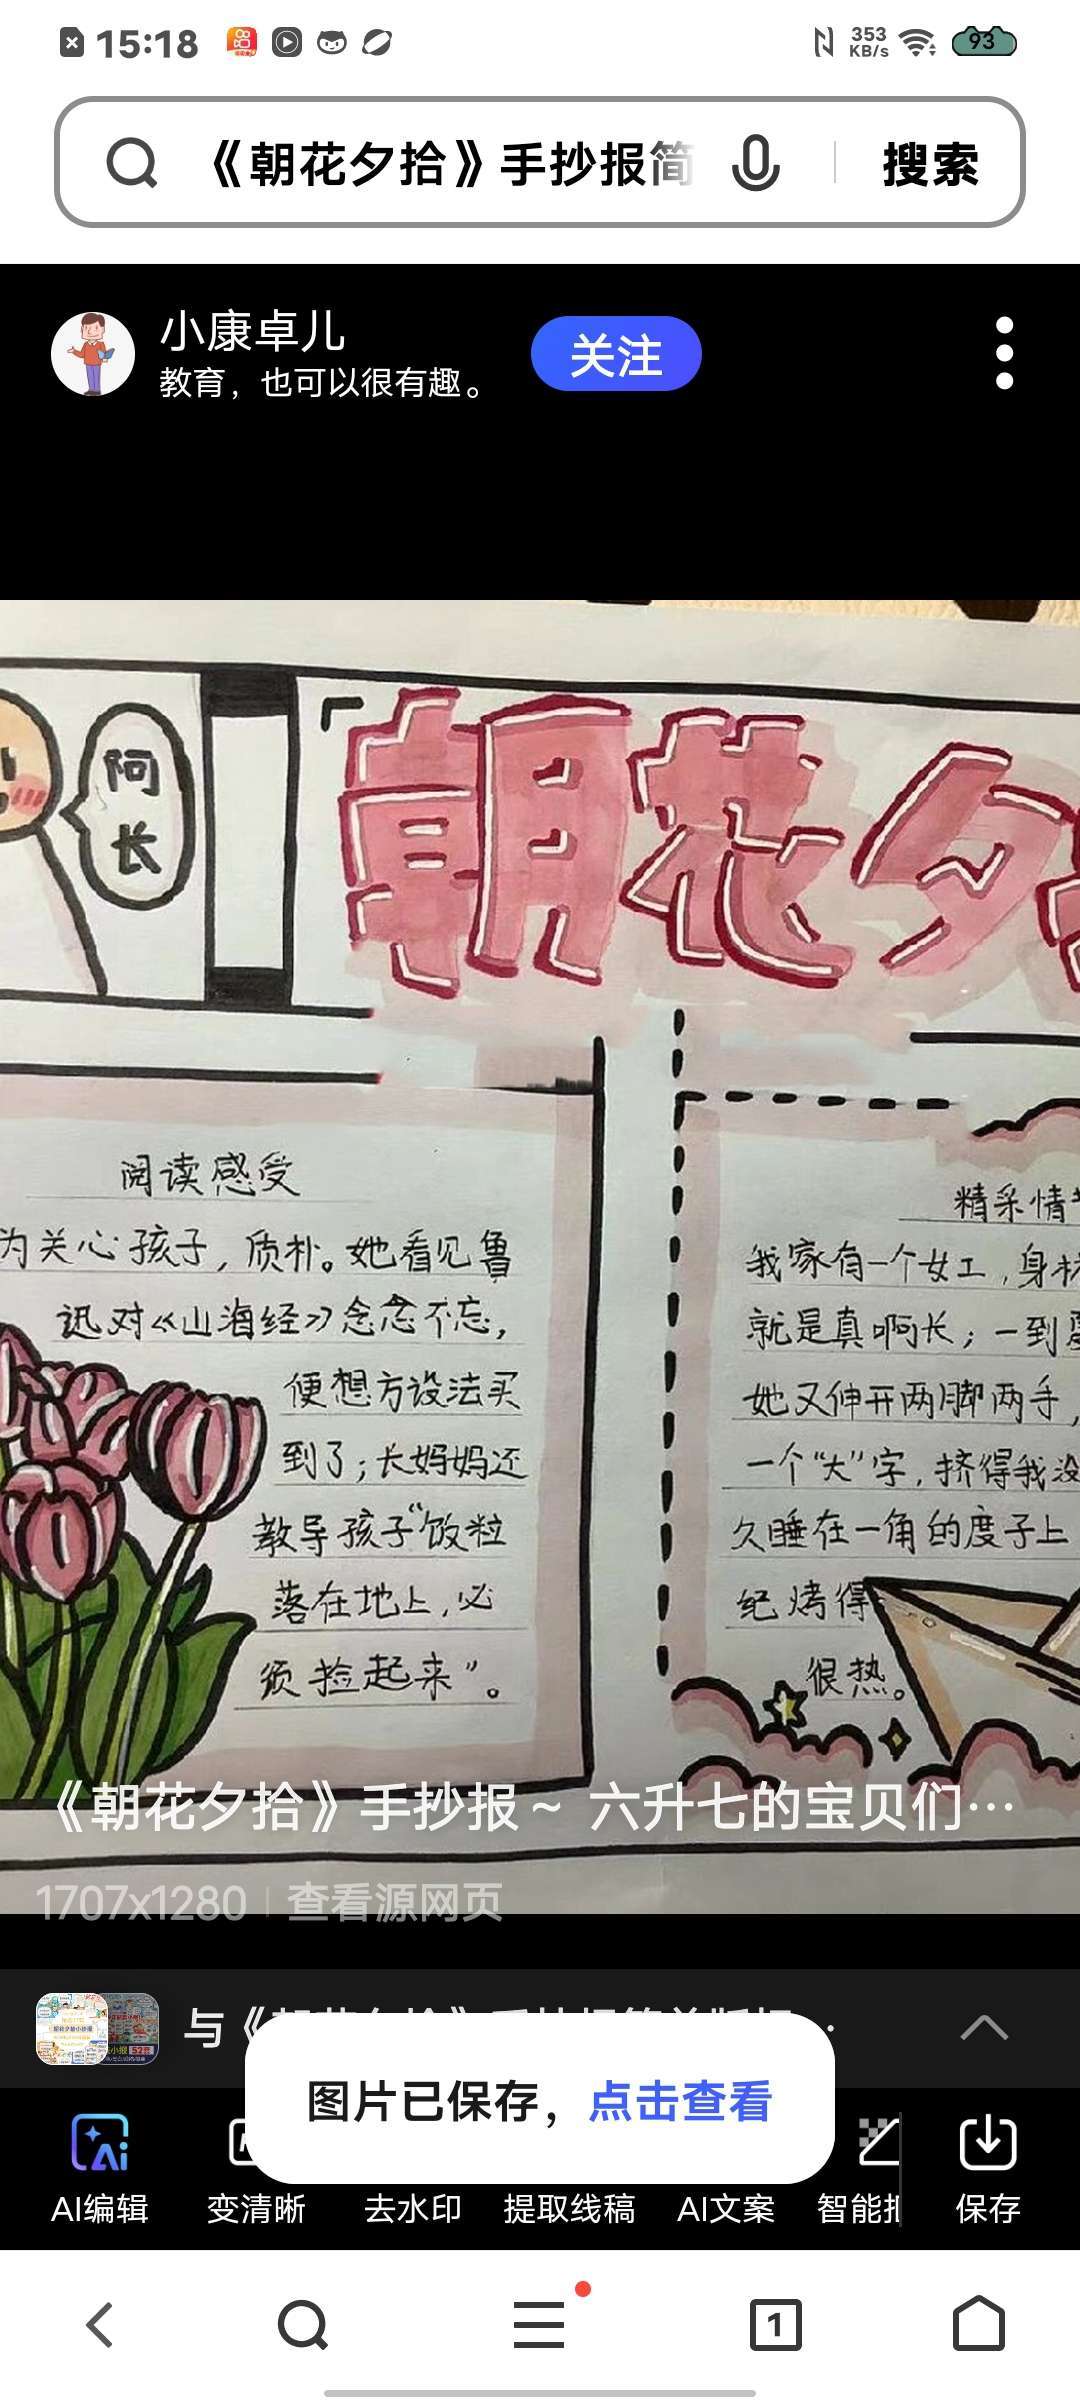 15:18
353
KB/s
93
《朝花夕拾》手抄报简
搜索
小康卓儿
教育，也可以很有趣。
关注
阿
长
「朝花夕
阅读感受
为关心孩子，质朴。她看见鲁
迅对《山海经》念念不忘，
便想方设法买
到了；长妈妈还
教导孩子“饭粒
落在地上，必
须捡起来”。
精采情
我家有一个女工，身
就是真啊长；一到
她又伸开两脚两手，
一个“大”字，挤得我没
久睡在一角的度子上
纪烤得
很热。
《朝花夕拾》手抄报～ 六升七的宝贝们…
1707x1280 | 查看源网页
与《朝花夕拾》手抄报简单版
图片已保存，点击查看
AI编辑
变清晰
去水印
提取线稿
AI文案
智能
保存
1